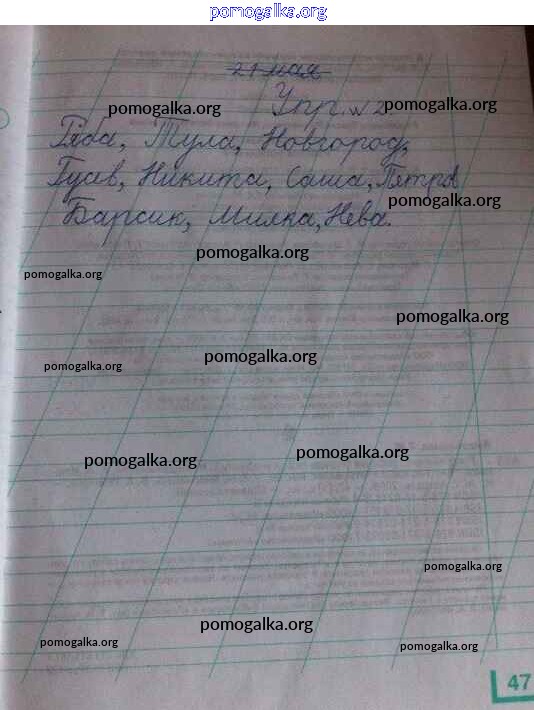 pomogalka.org
21 мая
Упр. № 2
pomogalka.org pomogalka.org
Тула, Новгород,
Гусев, Никита, Саша, Петров
pomogalka.org
Барсик, Милка, Нева.
pomogalka.org
pomogalka.org
pomogalka.org
pomogalka.org
pomogalka.org
pomogalka.org
pomogalka.org
pomogalka.org
pomogalka.org
pomogalka.org
pomogalka.org
47